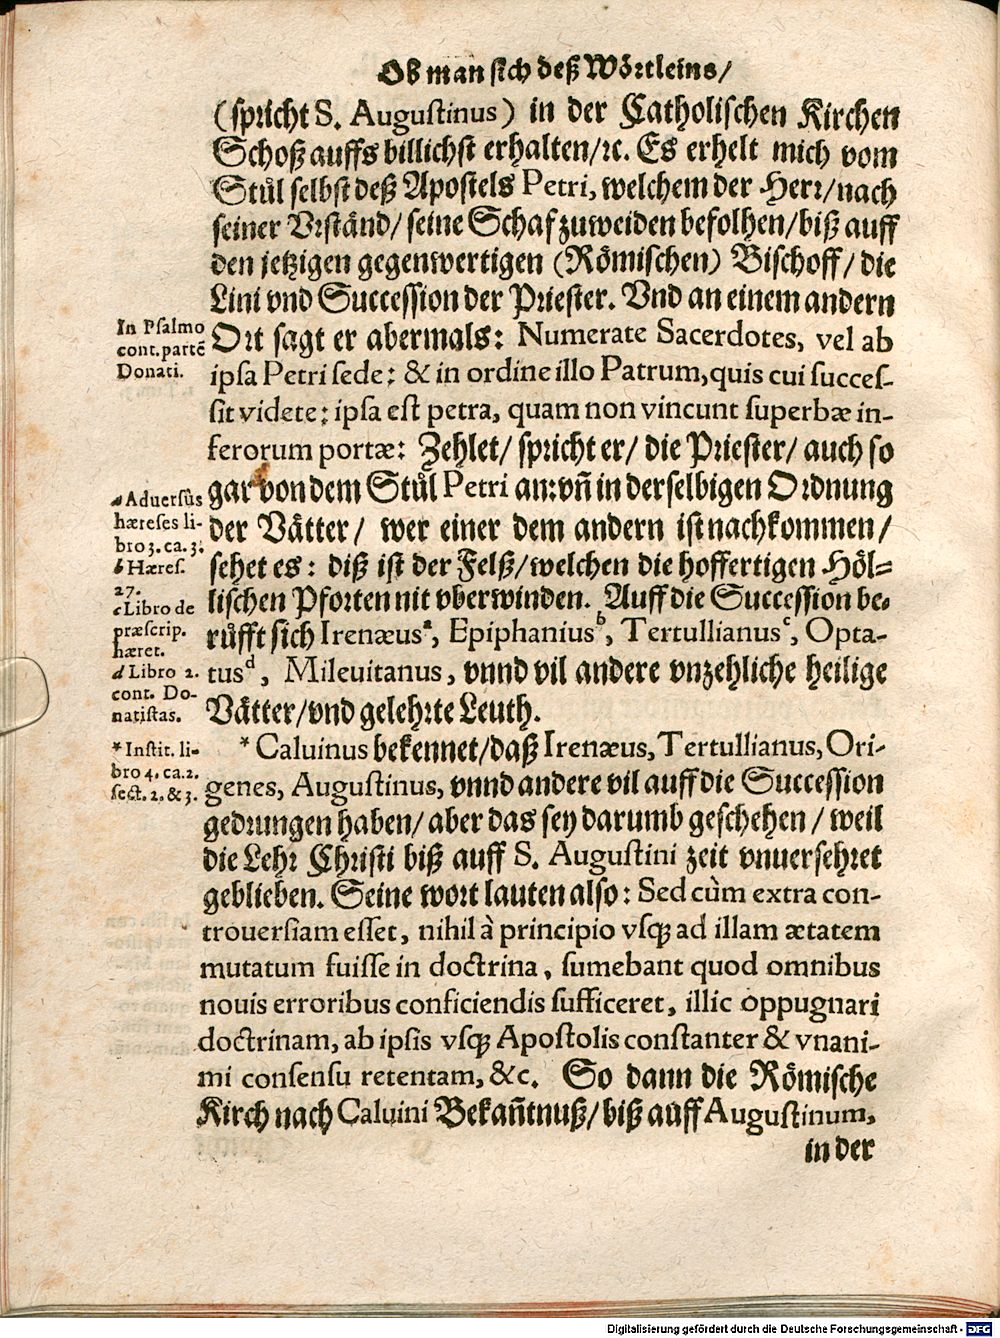 Ob man sich deß Wörtleins/
(spricht S. Augustinus) in der Catholischen Kirchen
Schoß auffs billichst erhalten/ꝛc. Es erhelt mich vom
Stůl selbst deß Apostels Petri, welchem der Herr/nach
seiner Vrständ/ seine Schaf zuweiden befolhen/biß auff
den jetzigen gegenwertigen (Römischen) Bischoff/ die
Lini vnd Succession der Priester. Vnd an einem andern
In Psalmo
cont. partē
Donati.
Ort sagt er abermals: Numerate Sacerdotes, vel ab
ipsa Petri sede: & in ordine illo Patrum, quis cui succes-
sit videte: ipsa est petra, quam non vincunt superbæ in-
ferorum portæ: Zehlet/ spricht er/ die Priester/ auch so
gar von dem Stůl Petri an: vñ in derselbigen Ordnung
der Vätter/ wer einer dem andern ist nachkommen/
sehet es: diß ist der Felß/welchen die hoffertigen Höl-
lischen Pforten nit vberwinden. Auff die Succession be-
růfft sich Irenæus a, Epiphanius b, Tertullianus c, Opta-
tus d, Mileuitanus, vnnd vil andere vnzehliche heilige
Vätter/vnd gelehrte Leuth.
a Aduersûs
hæreses li-
bro 3. ca. 3.
b Hæres.
27.
c Libro de
præscrip.
hæret.
d Libro 2.
cont. Do-
natistas.
* Instit. li-
bro 4. ca. 2.
sect. 2. & 3.
* Caluinus bekennet/daß Irenæus, Tertullianus, Ori-
genes, Augustinus, vnnd andere vil auff die Succession
gedrungen haben/ aber das sey darumb geschehen/ weil
die Lehr Christi biß auff S. Augustini zeit vnuersehret
geblieben. Seine wort lauten also: Sed cùm extra con-
trouersiam esset, nihil à principio vsq́; ad illam ætatem
mutatum fuisse in doctrina, sumebant quod omnibus
nouis erroribus conficiendis sufficeret, illic oppugnari
doctrinam, ab ipsis vsq́; Apostolis constanter & vnani-
mi consensu retentam, &c. So dann die Römische
Kirch nach Caluini Bekañtnuß/biß auff Augustinum,
in der
Digitalisierung gefördert durch die Deutsche Forschungsgemeinschaft - DFG